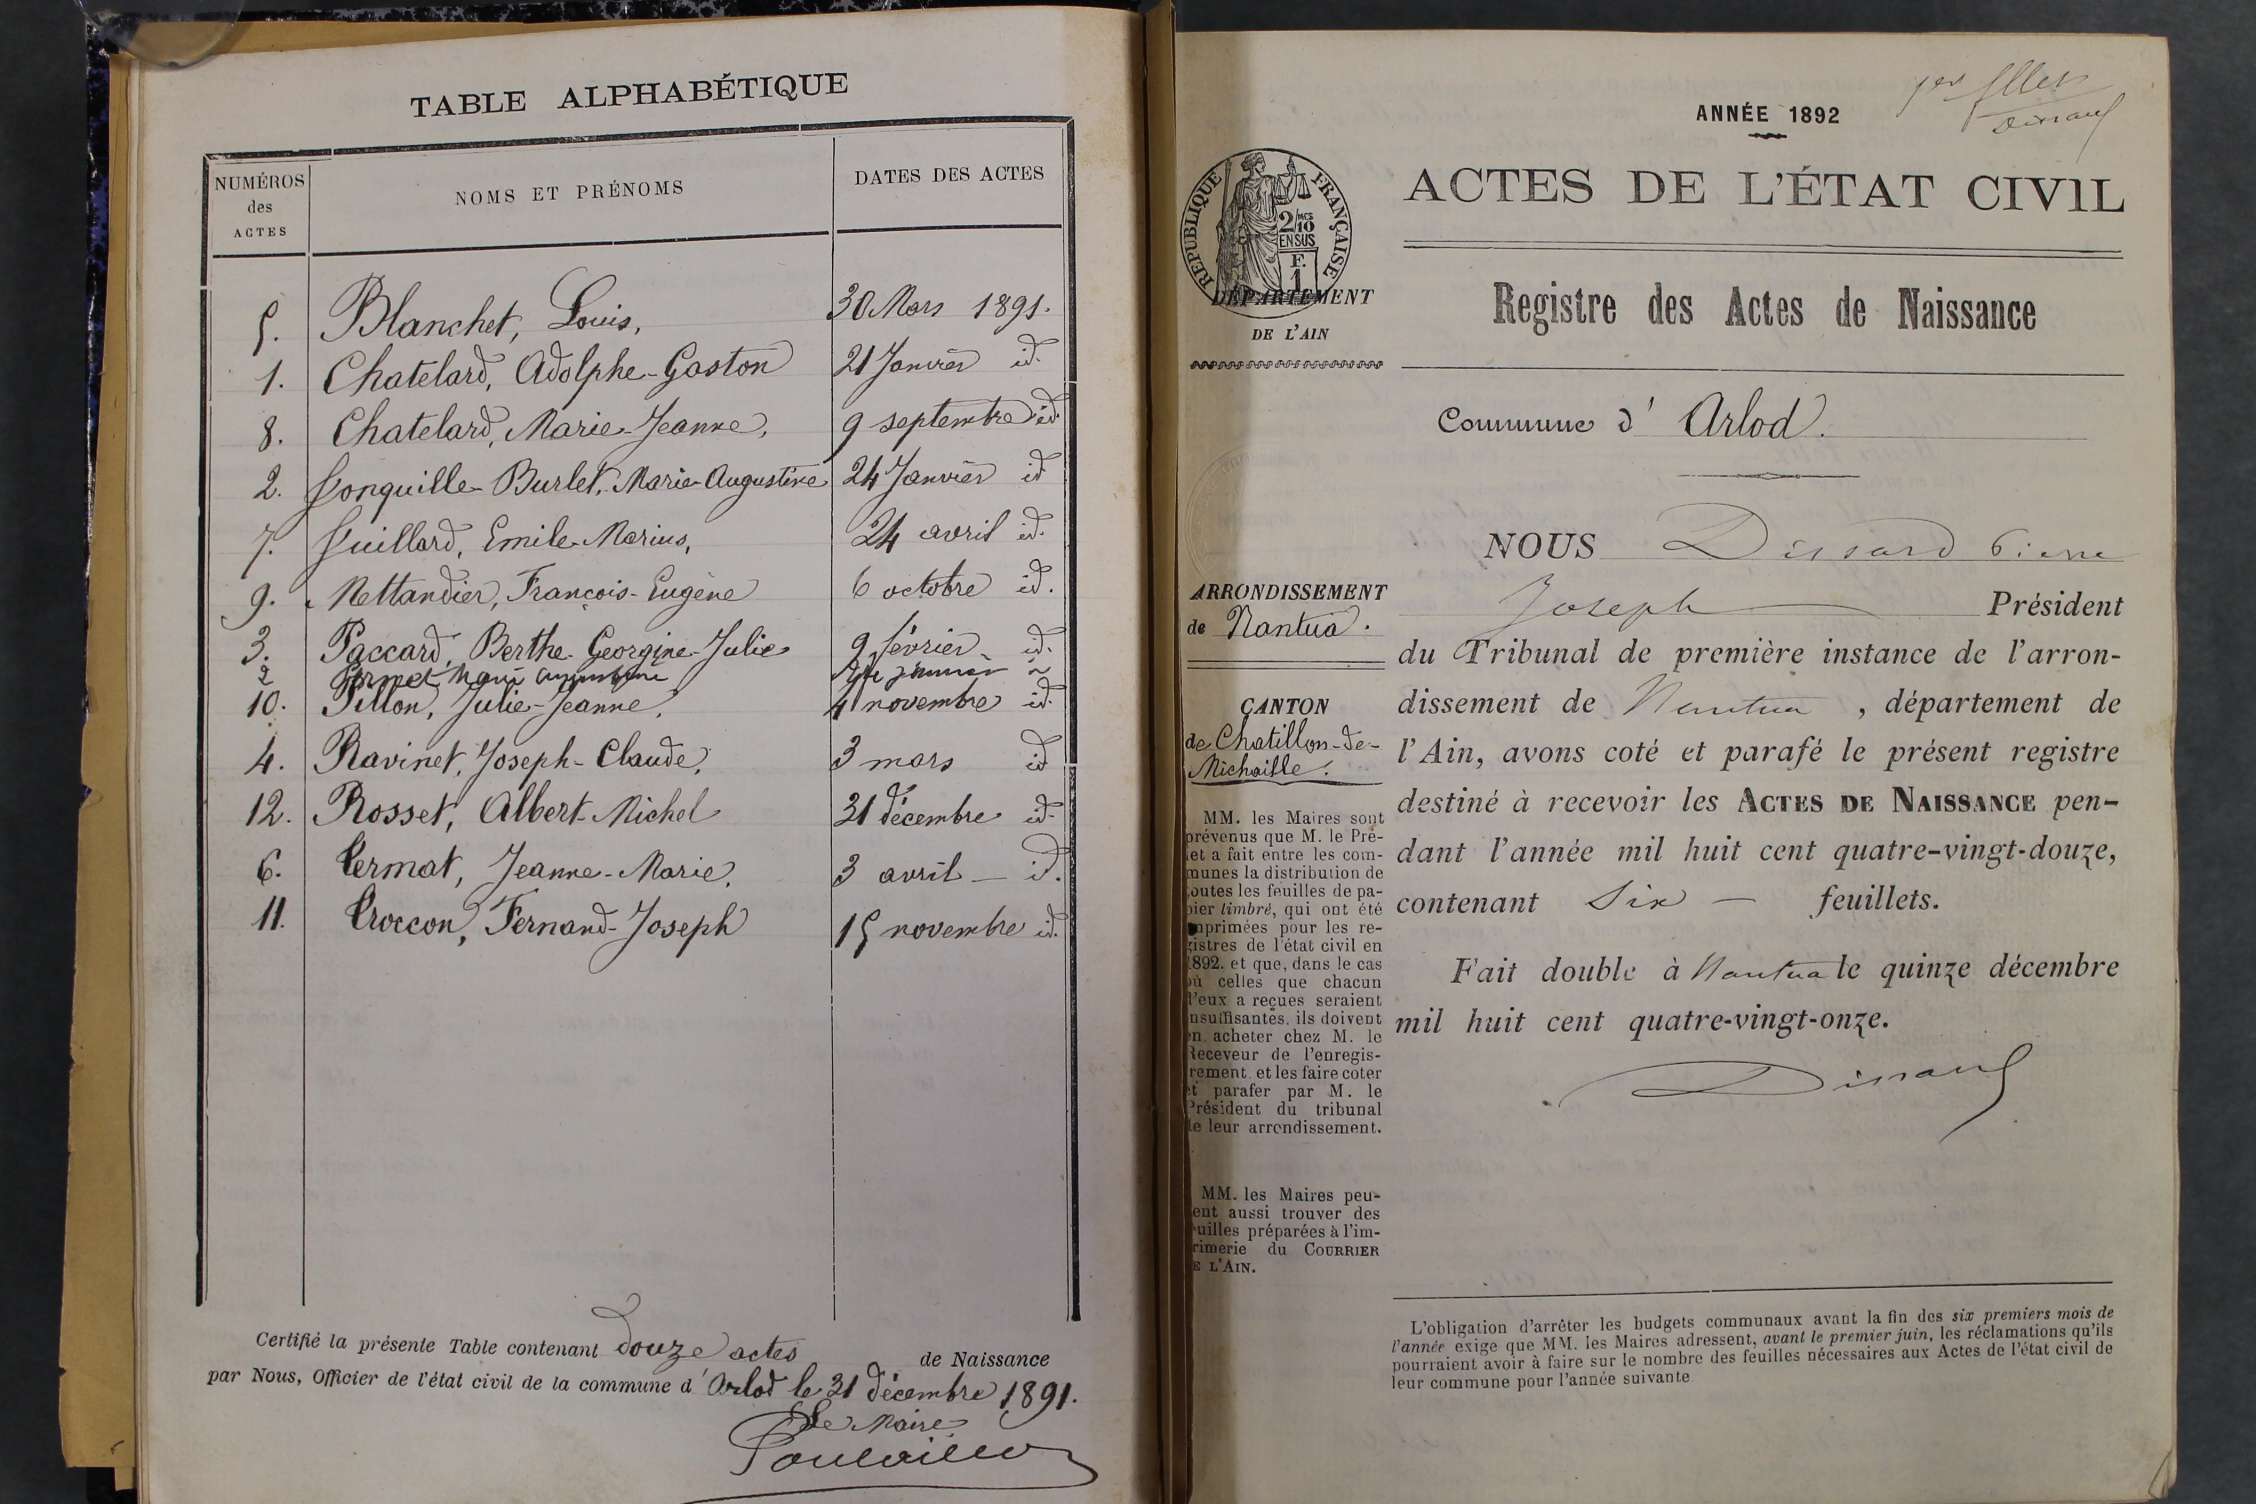 TABLE ALPHABÉTIQUE
NUMÉROS des ACTES
NOMS ET PRÉNOMS
DATES DES ACTES
5. Blanchet, Louis, 30 Mars 1891.
1. Chatelard, Adolphe-Gaston 21 Janvier id.
8. Chatelard, Marie-Jeanne, 9 septembre id
2. Jonquille-Burlet, Marie-Augustine 24 Janvier id
7. Juillard, Emile-Marius, 24 avril id.
9. Nettandier, François-Eugène 6 octobre id.
3. Paccard, Berthe-Georgine-Julie 9 février id.
2 Marie Augustine 24 janvier
10. Pillon, Julie-Jeanne, 4 novembre id.
4. Ravinet, Joseph-Claude, 3 mars id
12. Rosset, Albert-Michel 31 décembre id.
6. Termat, Jeanne-Marie, 3 avril — id.
11. Troccon, Fernand-Joseph 15 novembre id.
Certifié la présente Table contenant douze actes de Naissance
par Nous, Officier de l'état civil de la commune d'Arlod le 31 décembre 1891.
Le Maire
1er fllet
Dissard
ANNÉE 1892
ACTES DE L'ÉTAT CIVIL
RÉPUBLIQUE FRANÇAISE
2/10 MES
EN SUS
F.
1
DÉPARTEMENT
DE L'AIN
Registre des Actes de Naissance
Commune d' Arlod.
ARRONDISSEMENT
de Nantua.
CANTON
de Chatillon-de-
Michaille.
MM. les Maires sont
prévenus que M. le Pré-
fet a fait entre les com-
munes la distribution de
toutes les feuilles de pa-
pier timbré, qui ont été
imprimées pour les re-
gistres de l'état civil en
1892, et que, dans le cas
où celles que chacun
d'eux a reçues seraient
insuffisantes, ils doivent
en acheter chez M. le
Receveur de l'enregis-
trement, et les faire coter
et parafer par M. le
Président du tribunal
de leur arrondissement.
MM. les Maires peu-
vent aussi trouver des
feuilles préparées à l'im-
primerie du COURRIER
DE L'AIN.
NOUS Dissard Pierre
Joseph Président
du Tribunal de première instance de l'arron-
dissement de Nantua, département de
l'Ain, avons coté et parafé le présent registre
destiné à recevoir les ACTES DE NAISSANCE pen-
dant l'année mil huit cent quatre-vingt-douze,
contenant Six — feuillets.
Fait double à Nantua le quinze décembre
mil huit cent quatre-vingt-onze.
Dissard
L'obligation d'arrêter les budgets communaux avant la fin des six premiers mois de
l'année exige que MM. les Maires adressent, avant le premier juin, les réclamations qu'ils
pourraient avoir à faire sur le nombre des feuilles nécessaires aux Actes de l'état civil de
leur commune pour l'année suivante